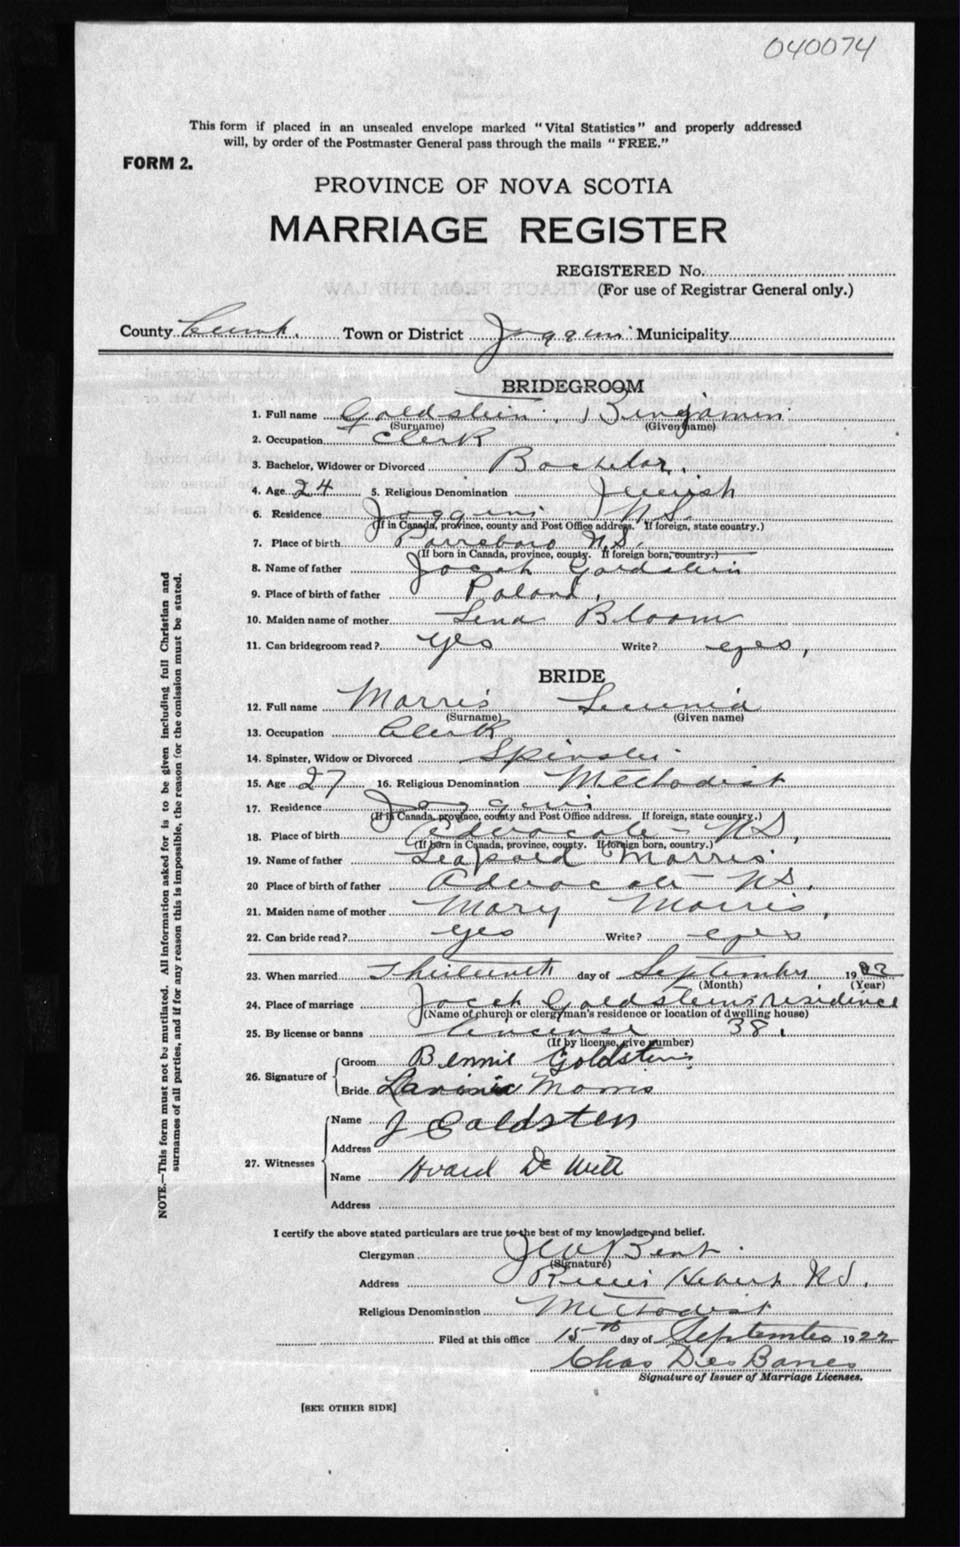 040074
This form if placed in an unsealed envelope marked "Vital Statistics" and properly addressed
will, by order of the Postmaster General pass through the mails "FREE."
FORM 2.
PROVINCE OF NOVA SCOTIA
MARRIAGE REGISTER
REGISTERED No.
(For use of Registrar General only.)
County Cumb. Town or District Joggins Municipality
BRIDEGROOM
1. Full name Goldstein Bingamin
(Surname) (Given name)
2. Occupation Clerk
3. Bachelor, Widower or Divorced Bachelor.
4. Age 24 5. Religious Denomination Jewish
6. Residence Joggins N.S.
(If in Canada, province, county and Post Office address. If foreign, state country.)
7. Place of birth Parrsboro N.S.
(If born in Canada, province, county. If foreign born, country.)
8. Name of father Jacob Goldstein
9. Place of birth of father Poland.
10. Maiden name of mother Lena Bloom
11. Can bridegroom read? yes Write? eyes,
BRIDE
12. Full name Morris
(Surname) (Given name)
13. Occupation Clerk
14. Spinster, Widow or Divorced Spinster
15. Age 27 16. Religious Denomination Methodist
17. Residence Joggins
(If in Canada, province, county and Post Office address. If foreign, state country.)
18. Place of birth Advocate N.S.,
(If born in Canada, province, county. If foreign born, country.)
19. Name of father Leopold Morris
20 Place of birth of father Advocate N.S.
21. Maiden name of mother Mary Morris,
22. Can bride read? yes Write? eyes
23. When married Thirteenth day of September 1922
(Month) (Year)
24. Place of marriage Jacob Goldsteins residence
(Name of church or clergyman's residence or location of dwelling house)
25. By license or banns 38.
(If by license, give number)
26. Signature of Groom Bennie Goldstein
Bride Lavinia Morris
27. Witnesses Name J Goldsten
Address
Name De Witt
Address
I certify the above stated particulars are true to the best of my knowledge and belief.
Clergyman Bent.
(Signature)
Address River Hebert N.S.
Religious Denomination Methodist
Filed at this office 15th day of September 1922
Chas DesBarres
Signature of Issuer of Marriage Licenses.
[SEE OTHER SIDE]
NOTE.—This form must not be mutilated. All information asked for is to be given including full Christian and
surnames of all parties, and if for any reason this is impossible, the reason for the omission must be stated.